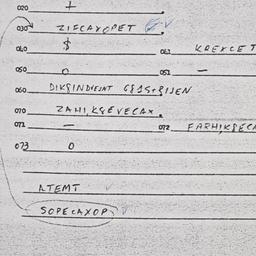 020 +
030 ZIFCAXOPET
040 $ 041 KREKCET
050 O 051 —
060 DIKSINDIEJAT
070 ZAHI,KSEVECAX.
071 — 072 FARHIKSECA
073 O
ATEMT
SOPECAXOP